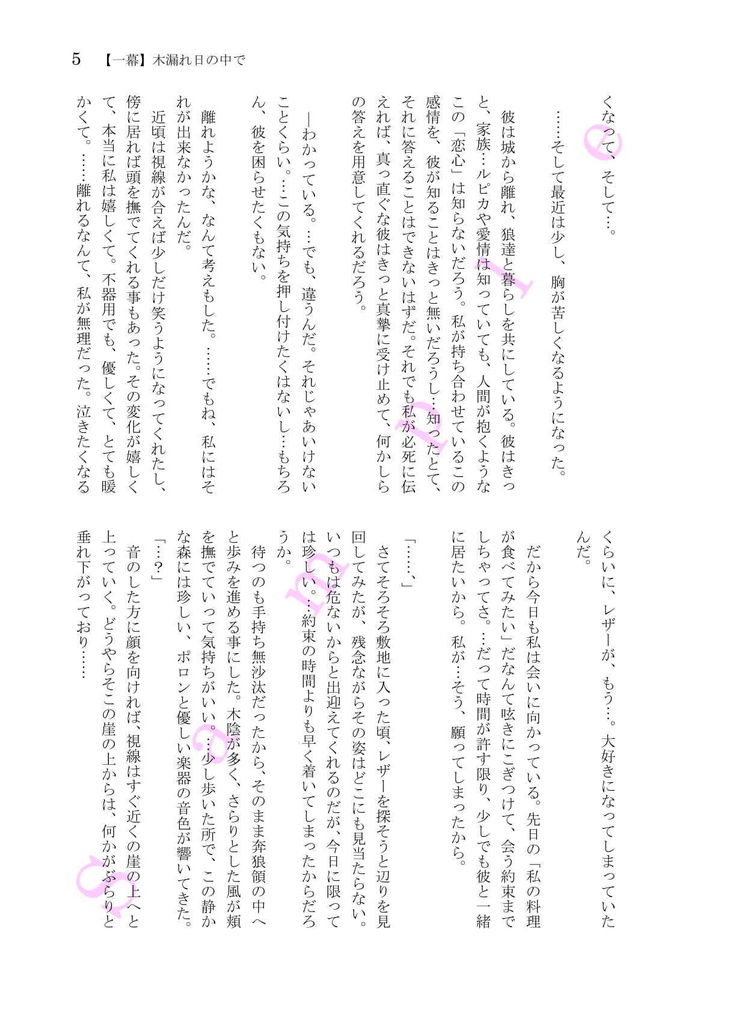 5 【一幕】木漏れ日の中で
くなって、そして…。
……そして最近は少し、胸が苦しくなるようになった。
彼は城から離れ、狼達と暮らしを共にしている。彼はきっ
と、家族…ルピカや愛情は知っていても、人間が抱くような
この「恋心」は知らないだろう。私が持ち合わせているこの
感情を、彼が知ることはきっと無いだろうし…知ったとて、
それに答えることはできないはずだ。それでも私が必死に伝
えれば、真っ直ぐな彼はきっと真摯に受け止めて、何かしら
の答えを用意してくれるだろう。
―わかっている。…でも、違うんだ。それじゃあいけない
ことくらい。…この気持ちを押し付けたくはないし…もちろ
ん、彼を困らせたくもない。
離れようかな、なんて考えもした。……でもね、私にはそ
れが出来なかったんだ。
近頃は視線が合えば少しだけ笑うようになってくれたし、
傍に居れば頭を撫でてくれる事もあった。その変化が嬉しく
て、本当に私は嬉しくて。不器用でも、優しくて、とても暖
かくて。……離れるなんて、私が無理だった。泣きたくなる
くらいに、レザーが、もう…。大好きになってしまっていた
んだ。
だから今日も私は会いに向かっている。先日の「私の料理
が食べてみたい」だなんて呟きにこぎつけて、会う約束まで
しちゃってさ。…だって時間が許す限り、少しでも彼と一緒
に居たいから。私が…そう、願ってしまったから。
「……、」
さてそろそろ敷地に入った頃、レザーを探そうと辺りを見
回してみたが、残念ながらその姿はどこにも見当たらない。
いつもは危ないからと出迎えてくれるのだが、今日に限って
は珍しい。…約束の時間よりも早く着いてしまったからだろ
うか。
待つのも手持ち無沙汰だったから、そのまま奔狼領の中へ
と歩みを進める事にした。木陰が多く、さらりとした風が頬
を撫でていって気持ちがいい。…少し歩いた所で、この静か
な森には珍しい、ポロンと優しい楽器の音色が響いてきた。
「…？」
音のした方に顔を向ければ、視線はすぐ近くの崖の上へと
上っていく。どうやらそこの崖の上からは、何かがぶらりと
垂れ下がっており……
Sample